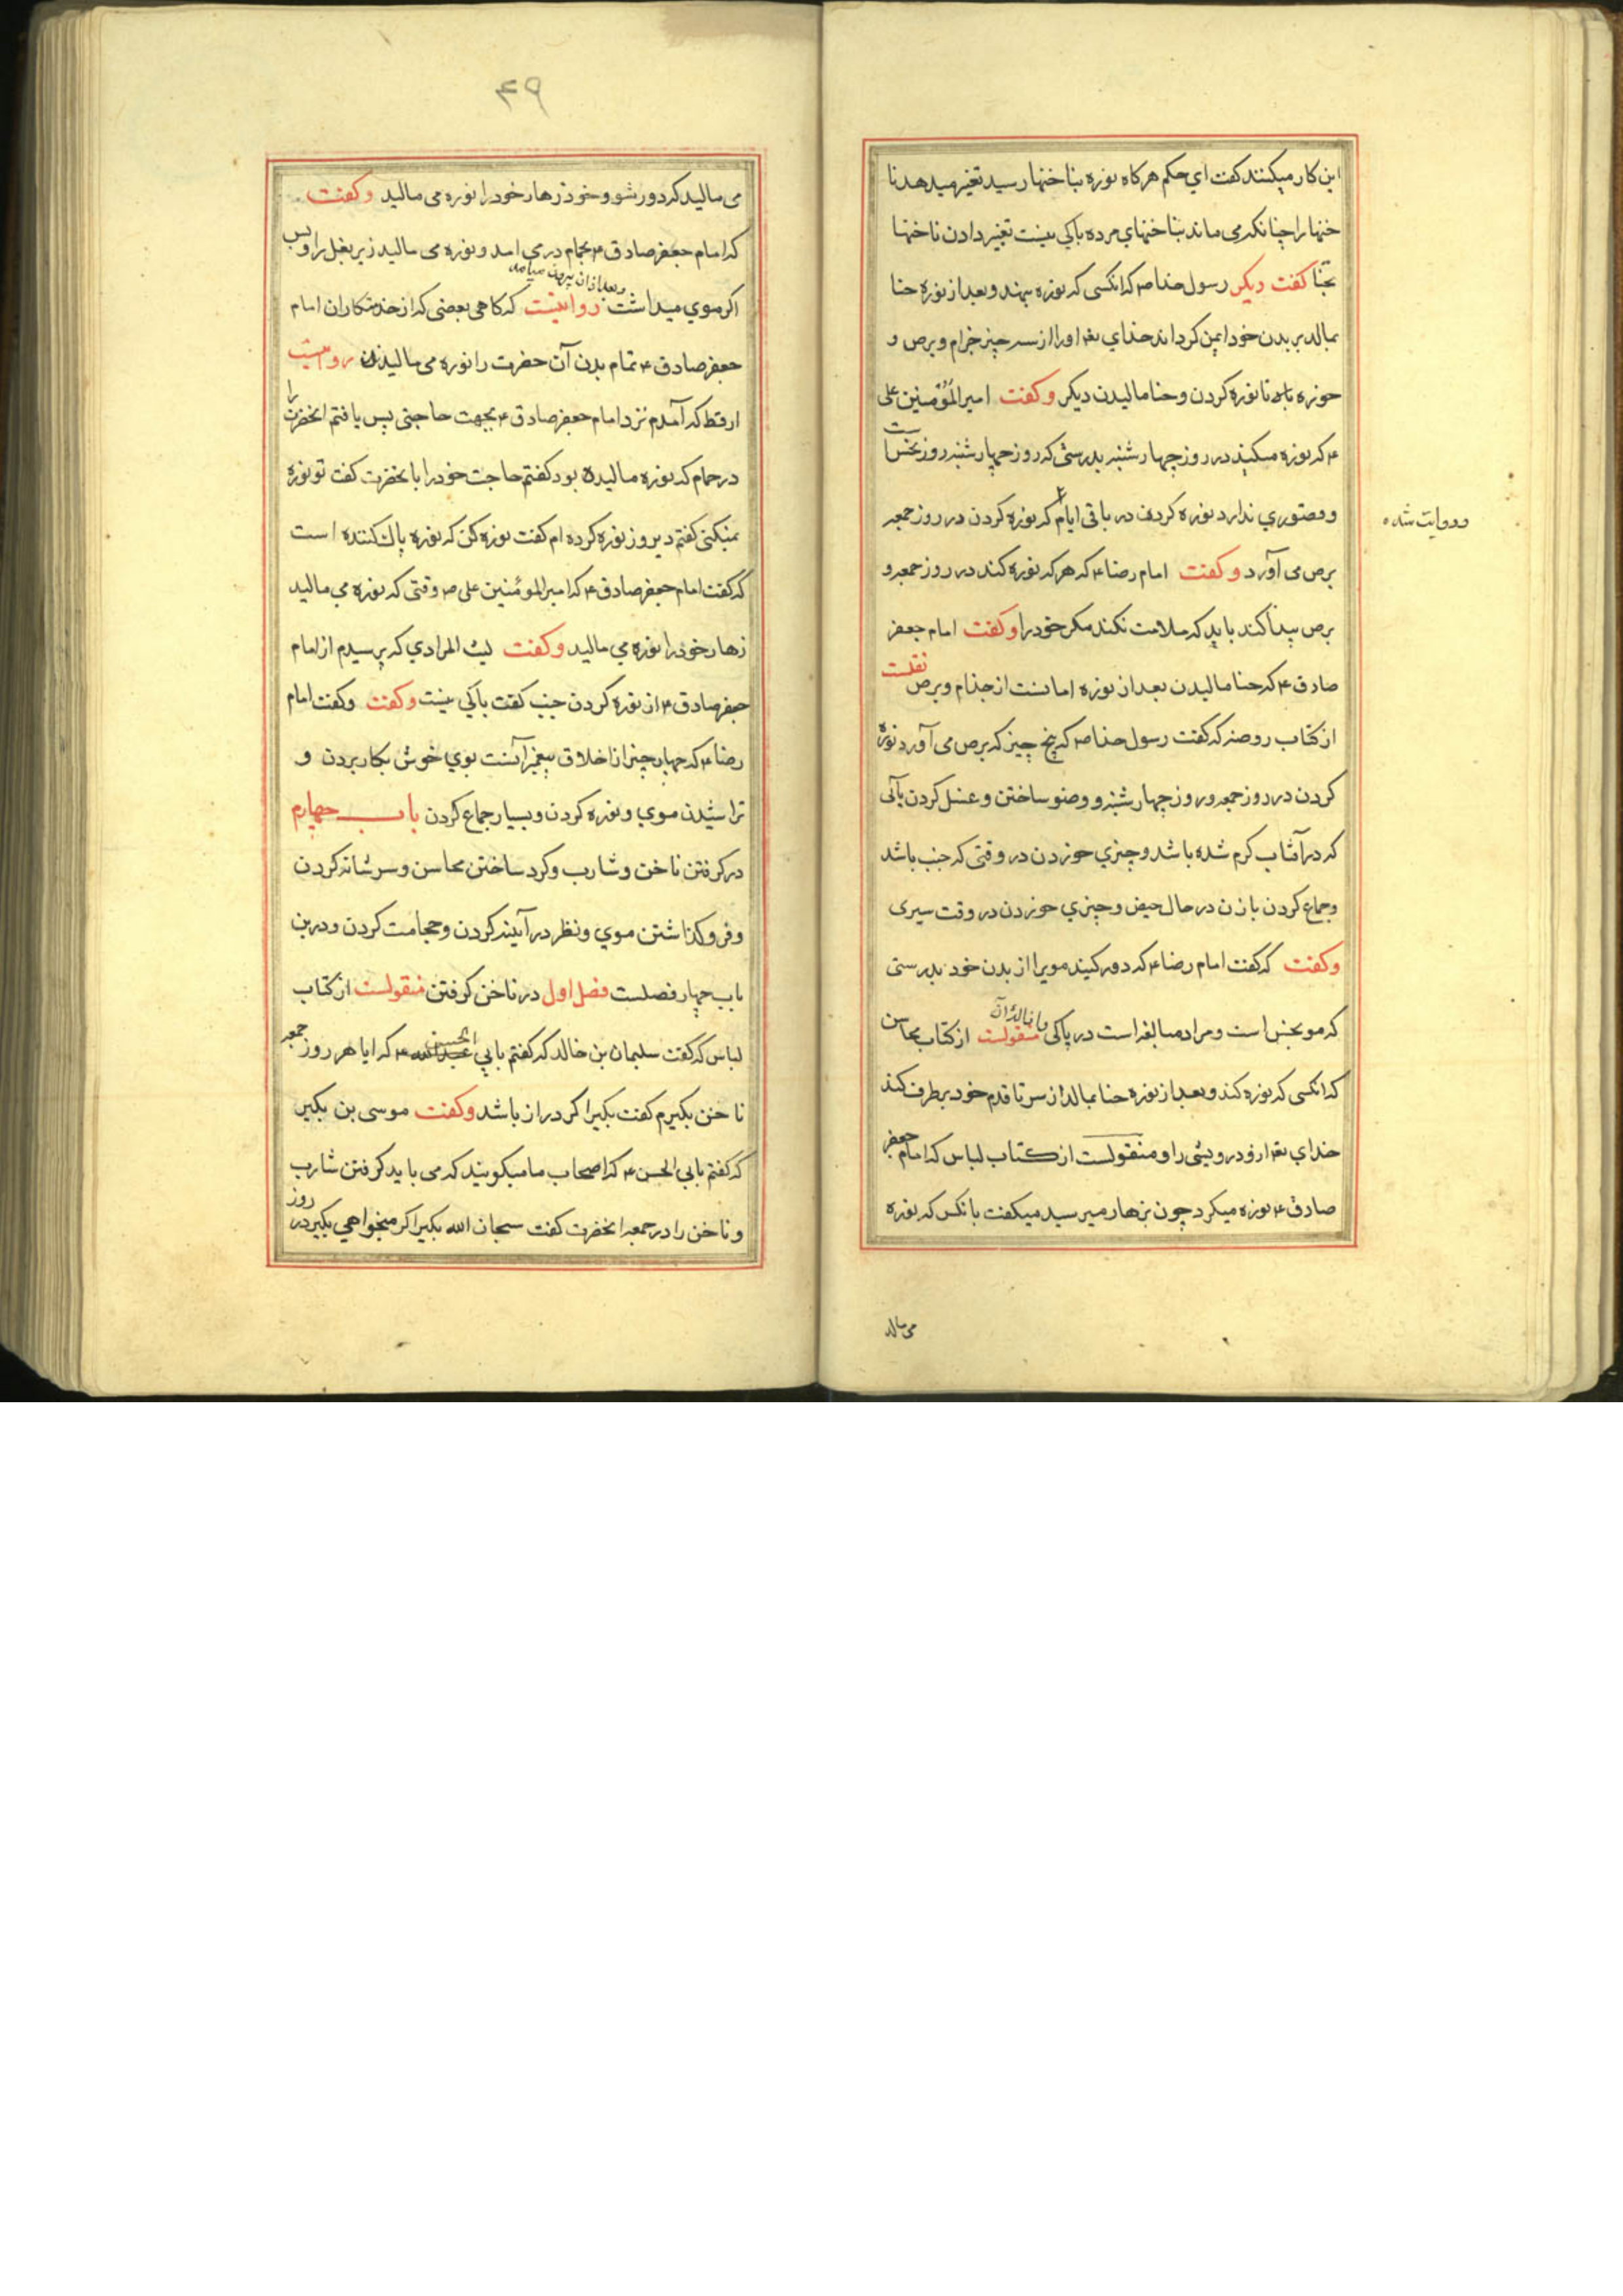 این کار میکنند کفت ای حکم هر کاه نوره بناخنها رسید تغیر میدهد نا
خنها را چنانکه می ماند بناخنهای مرده باکی نیست تغیر دادن ناخنها
بحنا کفت دیکر رسول خدا ص که انکسی که نوره بنهد و بعد از نوره حنا
بمالد بر بدن خود ایمن کرداند خدای تع اورا از سه چیز جزام و برص و
خوره تا نوره کردن و حنا مالیدن دیکر وکفت امیر المؤمنین علی
ع که نوره مکنید در روز چهارشنبه بدرستی که روز چهارشنبه روز نخس است
و قصوری ندارد نوره کردن در باقی ایام که نوره کردن در روز جمعه
و روایت شده
برص می آورد وکفت امام رضا ع که هر که نوره کند در روز جمعه و
برص پیدا کند باید که ملامت نکند مکر خود را وکفت امام جعفر
صادق ع که حنا مالیدن بعد از نوره امانست از جذام و برص نقلست
از کتاب روضه که کفت رسول خدا ص که پنج چیز که برص می آورد نوره
کردن در روز جمعه و روز چهارشنبه و وضو ساختن و غسل کردن بآبی
که در آفتاب کرم شده باشد و چیزی خوردن در وقتی که جنب باشد
و جماع کردن با زن در حال حیض و چیزی خوردن در وقت سیری
وکفت که کفت امام رضا ع که دور کنید مویرا از بدن خود بدرستی
که مو نجس است و مراد مبالغه است در پاکی و ازالهٔ آن منقولست از کتاب محاسن
که انکسی که نوره کند و بعد از نوره حنا بمالد از سر تا قدم خود برطرف کند
خدای تع ازو درویشی را و منقولست از کتاب لباس که امام جعفر
صادق ع نوره میکرد چون بزهار میرسید میکفت بانکس که نوره
می مالد
۴۹
می مالید که دور شو و خود زهار خود را نوره می مالید وکفت
که امام جعفر صادق ع بحمام در می امد و نوره می مالید زیر بغل را و پس
اکر موی میداشت و بعد از ان بیرون میامد روایتست که کاهی بعضی که از خدمتکاران امام
جعفر صادق ع تمام بدن آن حضرت را نوره می مالیدند رویست
ارقط که آمدم نزد امام جعفر صادق ع بجهت حاجتی پس یافتم انحضرت را
در حمام که نوره مالیده بود کفتم حاجت خود را بانحضرت کفت تو نوره
نمیکنی کفتم دیروز نوره کرده ام کفت نوره کن که نوره پاک کننده است
که کفت امام جعفر صادق ع که امیر المؤمنین علی ص وقتی که نوره می مالید
زهار خود را نوره می مالید وکفت لیث المرادی که پرسیدم از امام
جعفر صادق ع از نوره کردن جنب کفت باکی نیست وکفت وکفت امام
رضا ع که چهار چیز از اخلاق پیغمبرانست بوی خوش بکار بردن و
تراشیدن موی و نوره کردن و بسیار جماع کردن باب چهارم
در کرفتن ناخن و شارب و کرد ساختن محاسن و سر شانه کردن
و فرو کذاشتن موی و نظر در آیینه کردن و حجامت کردن و درین
باب چهار فصلست فصل اول در ناخن کرفتن منقولست از کتاب
لباس که کفت سلیمان بن خالد که کفتم بابی عبدالله الحسین ع که ایا هر روز جمعه
ناخن بکیرم کفت بکیر اکر دراز باشد وکفت موسی بن بکیر
که کفتم بابی الحسن ع که اصحاب ما میکویند که می باید کرفتن شارب
و ناخن را در جمعه انحضرت کفت سبحان الله بکیر اکر میخواهی بکیر در روز